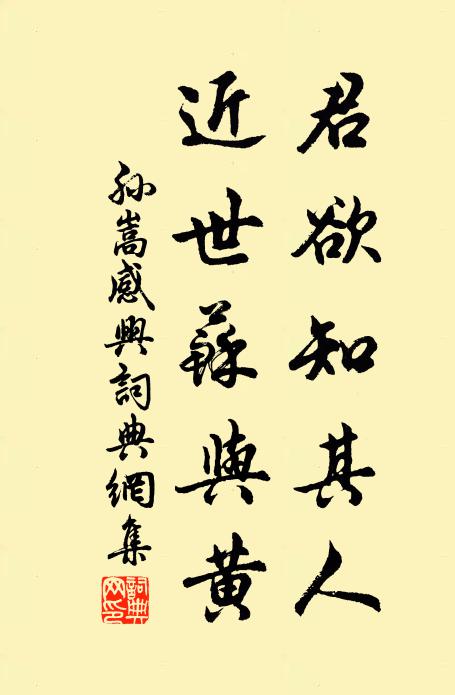 君欲知其人
近世蘇與黃
孫嵩感興詞典網集
詞典網印